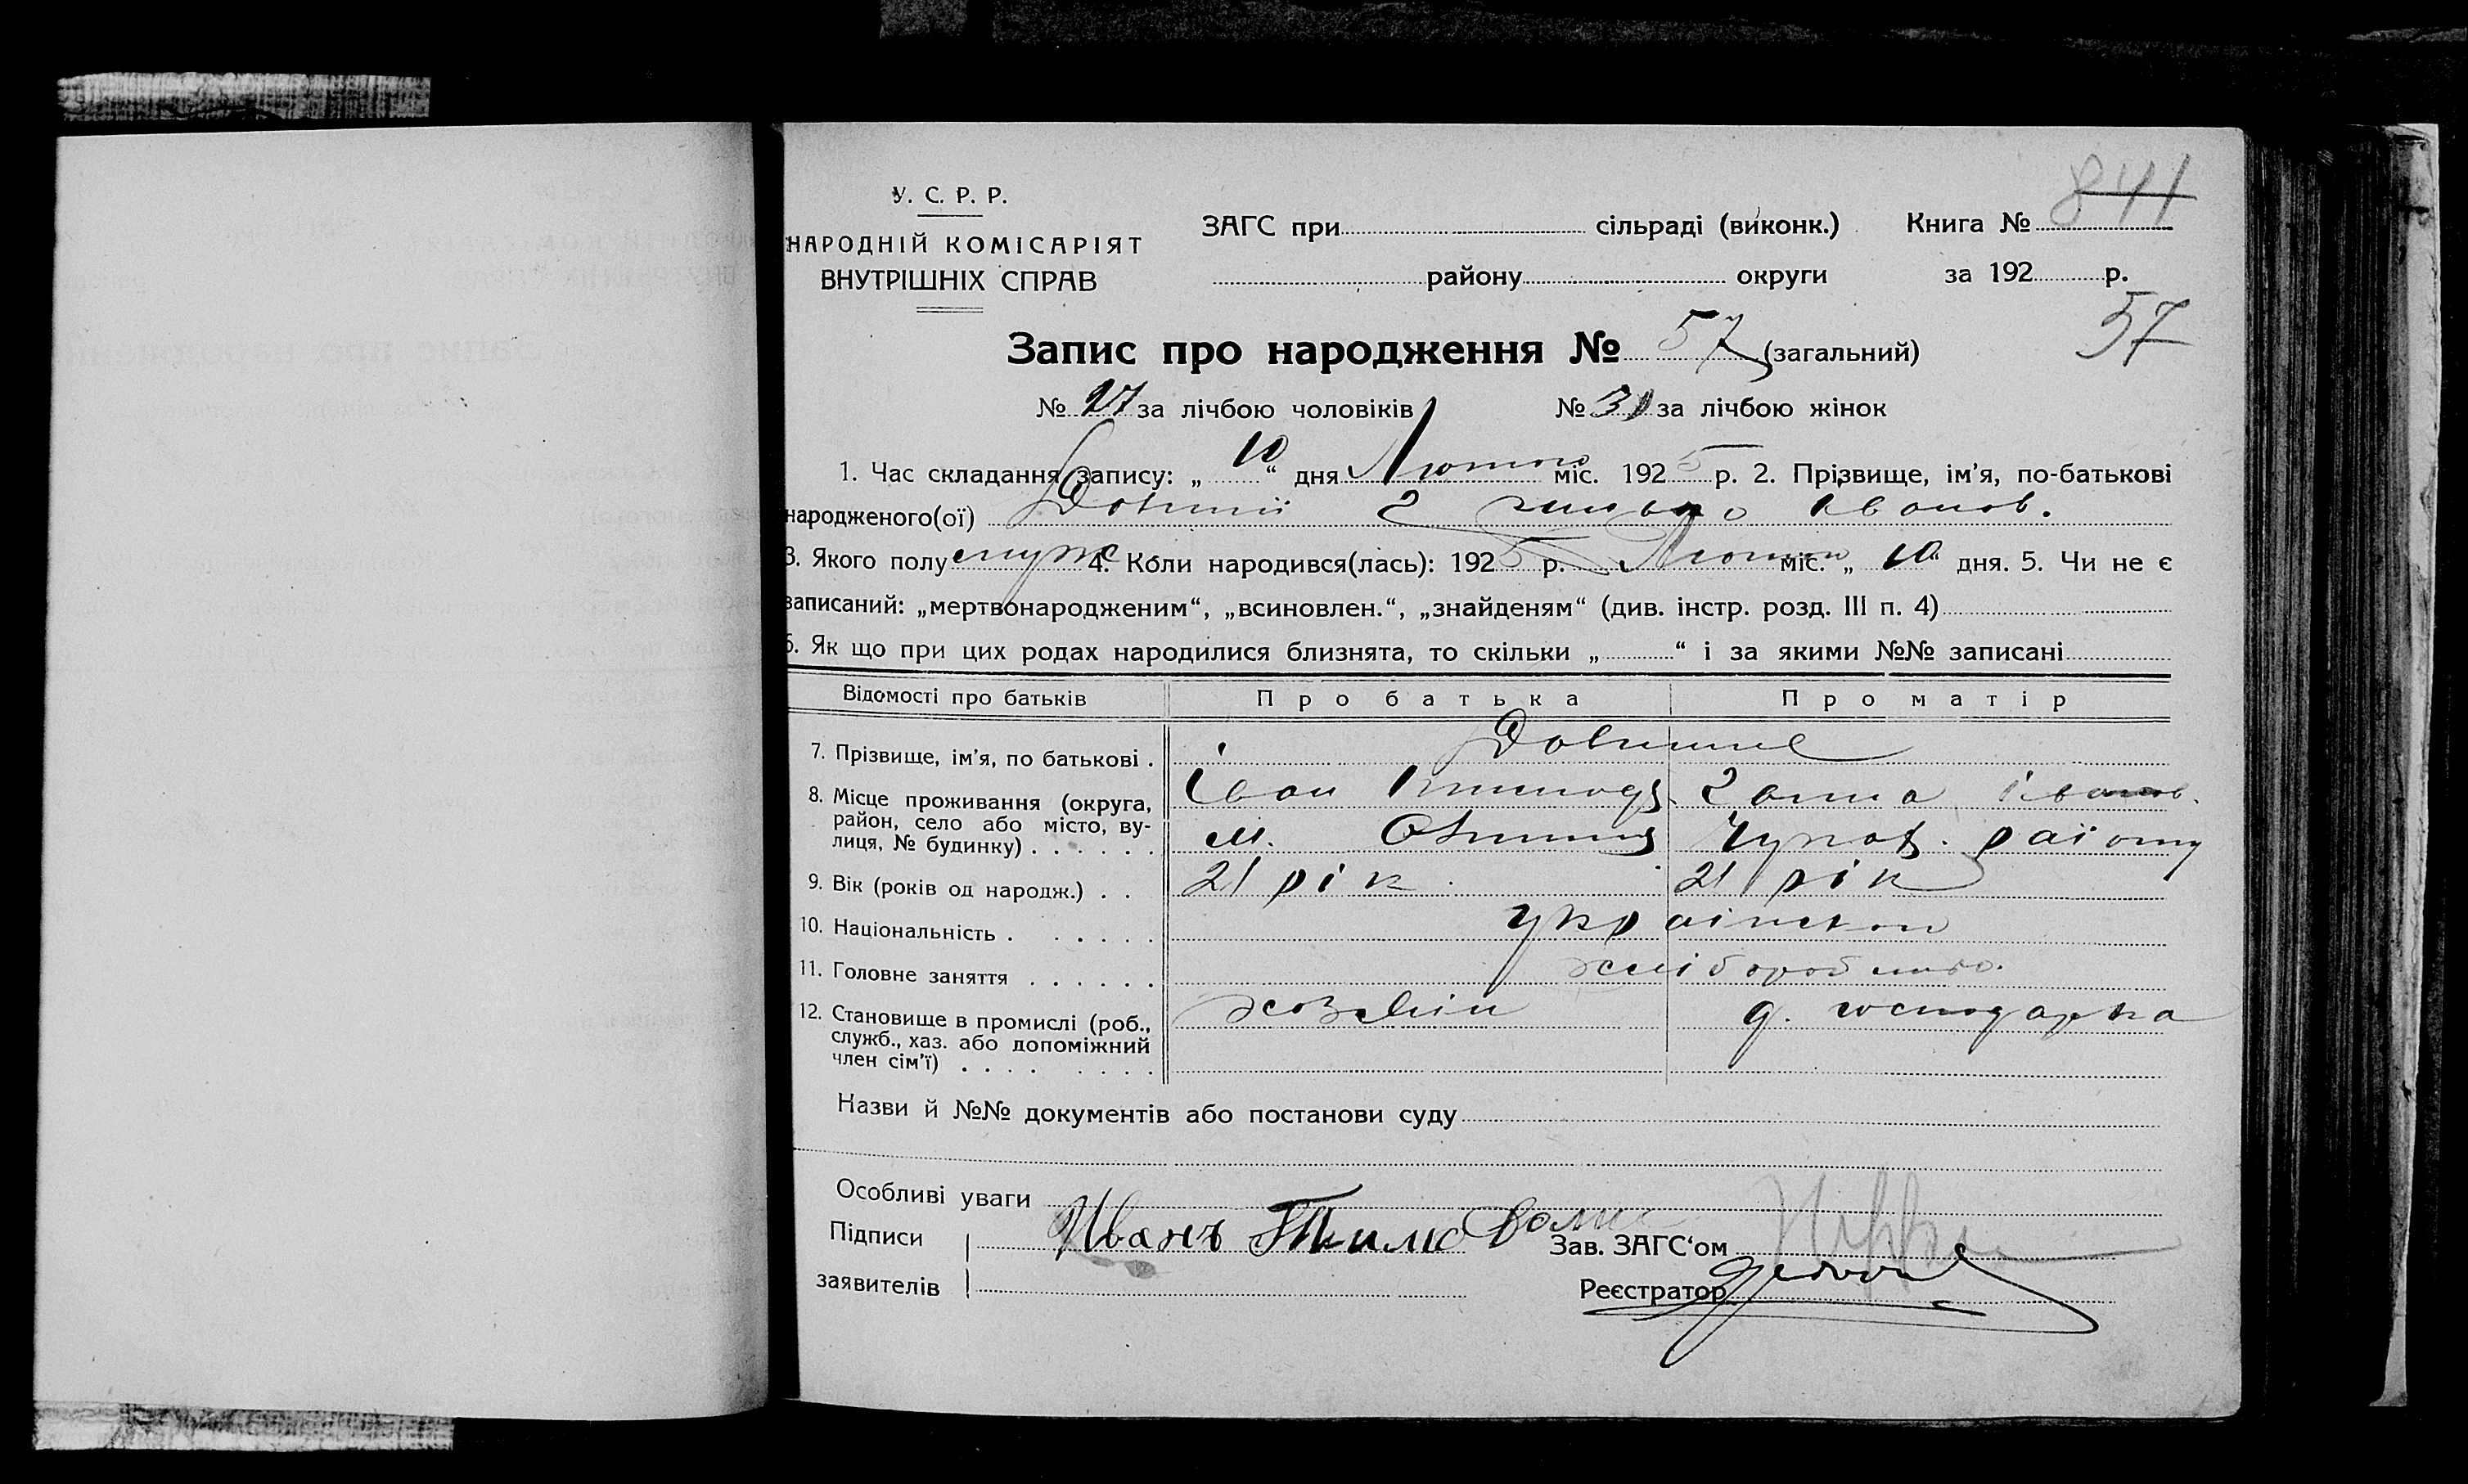 841
У. С. Р. Р.
НАРОДНІЙ КОМІСАРІЯТ
ВНУТРІШНІХ СПРАВ
ЗАГС при сільраді (виконк.) Книга №
району округи за 192 р.
57
Запис про народження № 57 (загальний)
№ 27 за лічбою чоловіків № 30 за лічбою жінок
1. Час складання запису: „ 10 “ дня Лютого міс. 192 5 р. 2. Прізвище, ім'я, по-батькові
народженого(ої) Іванов.
3. Якого полу муж 4. Коли народився(лась): 192 5 р. Лютого міс. „ 10 “ дня. 5. Чи не є
записаний: „мертвонародженим“, „всиновлен.“, „знайденям“ (див. інстр. розд. III п. 4)
6. Як що при цих родах народилися близнята, то скільки „ “ і за якими №№ записані
Відомості про батьків Про батька Про матір
7. Прізвище, ім'я, по батькові .
Іван Ганна Іванов.
8. Місце проживання (округа,
район, село або місто, ву-
лиця, № будинку) . . . . . . м. району
9. Вік (років од народж.) . . 21 рік 21 рік
10. Національність . . . . . .
11. Головне заняття . . . . . .
12. Становище в промислі (роб.,
служб., хаз. або допоміжний
член сім'ї) . . . . . . . . хозяїн д. господарка
Назви й №№ документів або постанови суду
Особливі уваги
Підписи Иванъ Зав. ЗАГС‘ом
заявителів Реєстратор